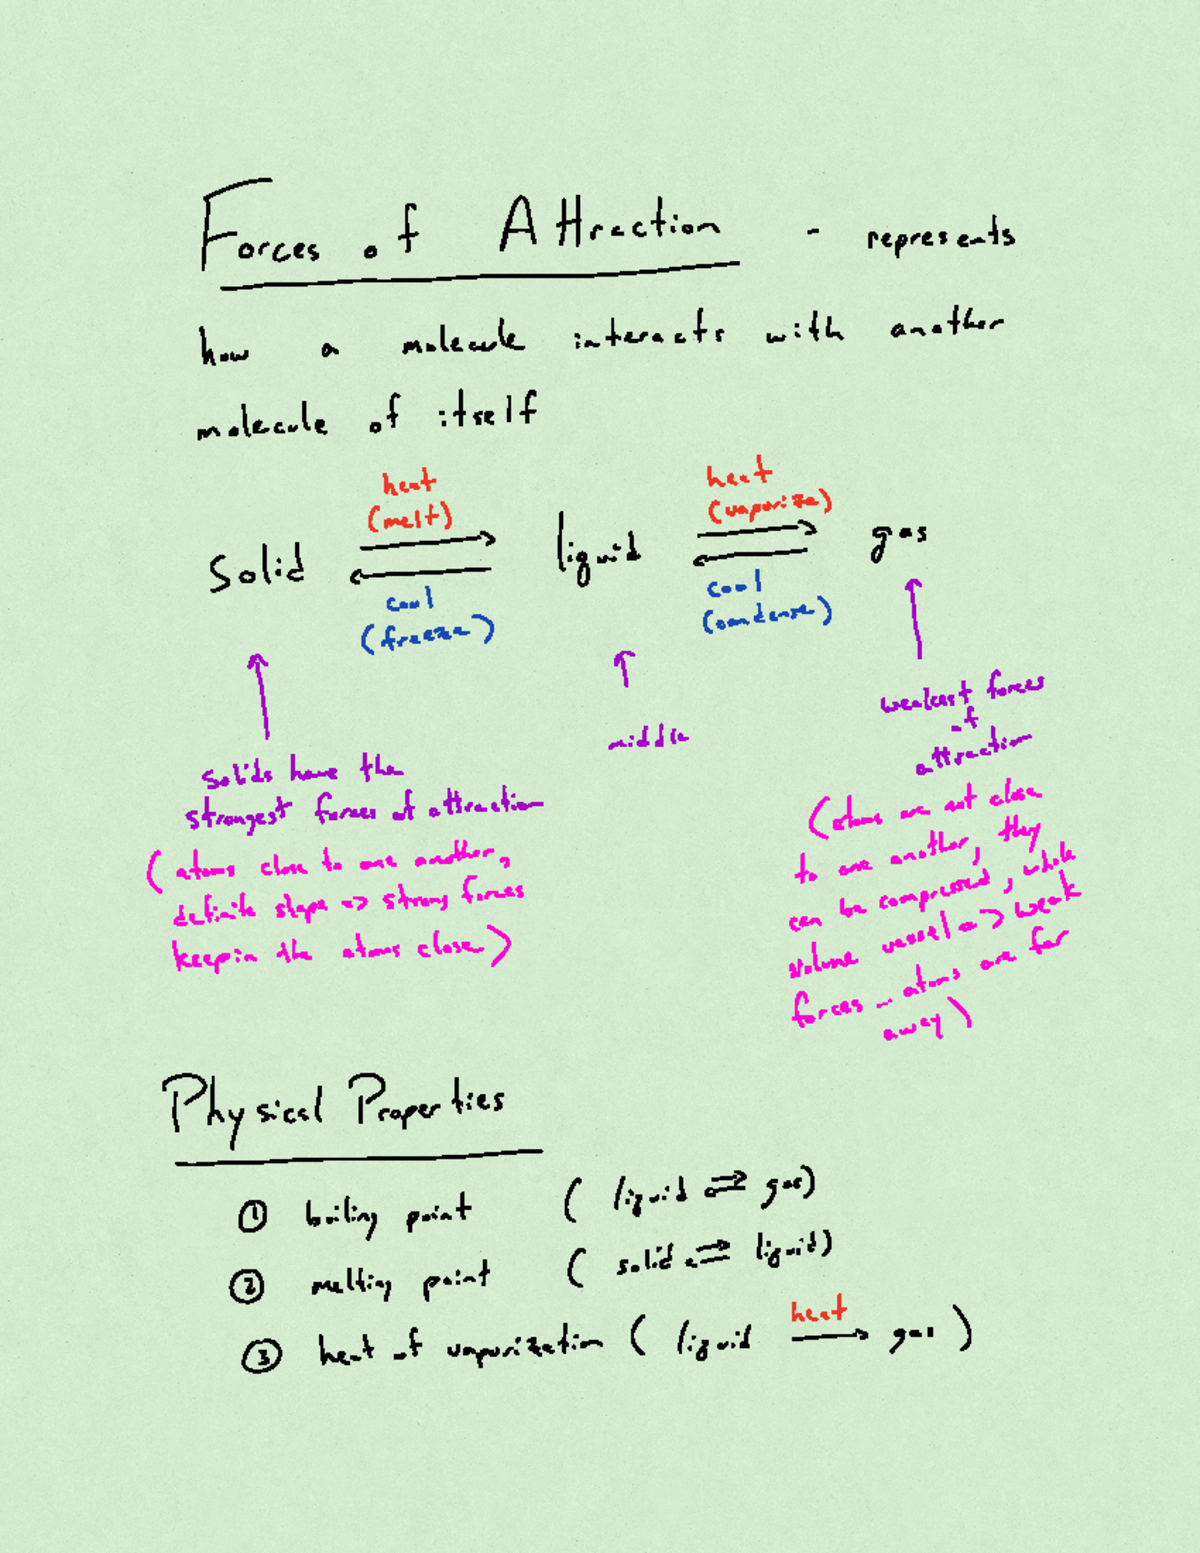 Forces of Attraction - represents
how a molecule interacts with another
molecule of itself
heat
(melt)
heat
(vaporize)
Solid ⇌ liquid ⇌ gas
cool
(freeze)
cool
(condense)
solids have the
strongest forces of attraction
(atoms close to one another,
definite shape => strong forces
keepin the atoms close)
middle
weakest forces
of
attraction
(atoms are not close
to one another, they
can be compressed, whole
volume vessel => weak
forces - atoms are far
away)
Physical Properties
① boiling point (liquid ⇌ gas)
② melting point (solid ⇌ liquid)
heat
③ heat of vaporization (liquid → gas)